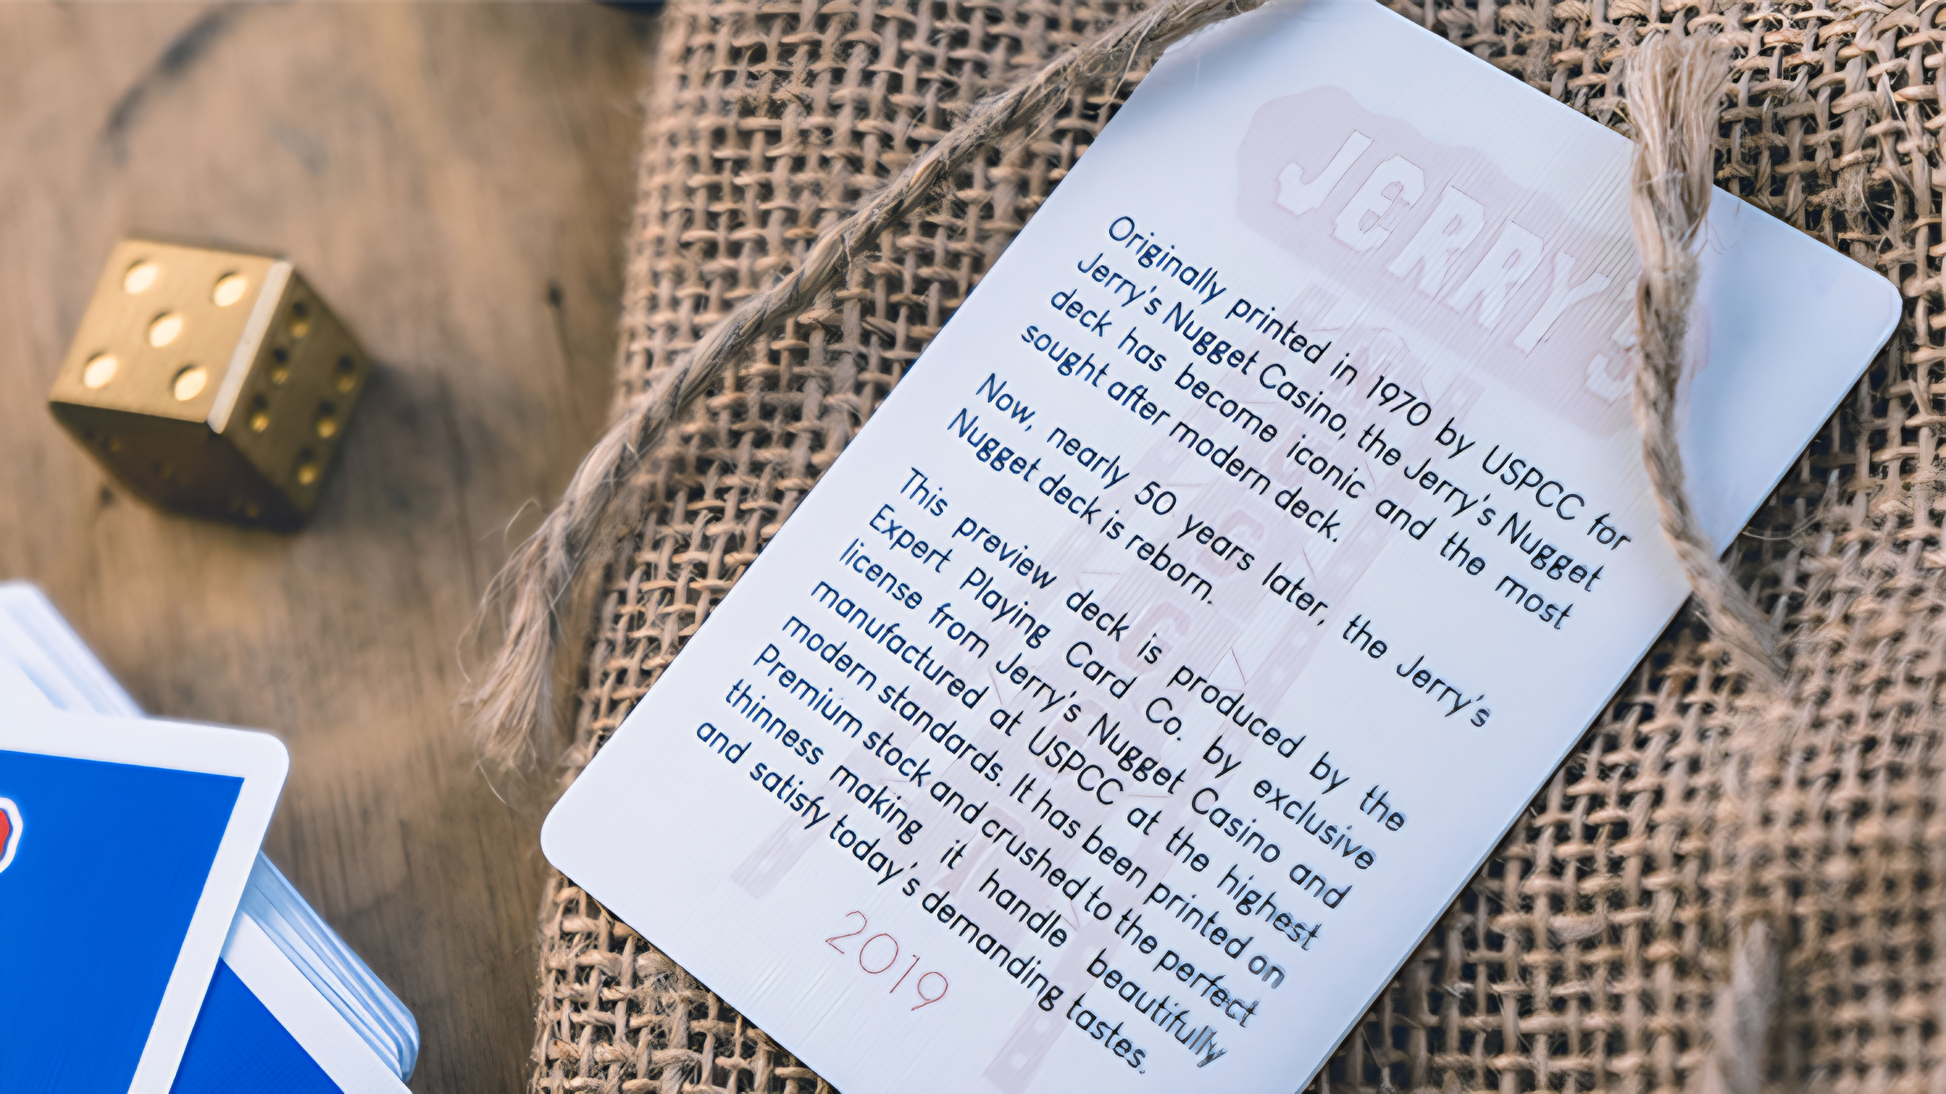 JERRY'S
Originally printed in 1970 by USPCC for
Jerry's Nugget Casino, the Jerry's Nugget
deck has become iconic and the most
sought after modern deck.
Now, nearly 50 years later, the Jerry's
Nugget deck is reborn.
This preview deck is produced by the
Expert Playing Card Co. by exclusive
license from Jerry's Nugget Casino and
manufactured at USPCC at the highest
modern standards. It has been printed on
Premium stock and crushed to the perfect
thinness making it handle beautifully
and satisfy today's demanding tastes.
2019